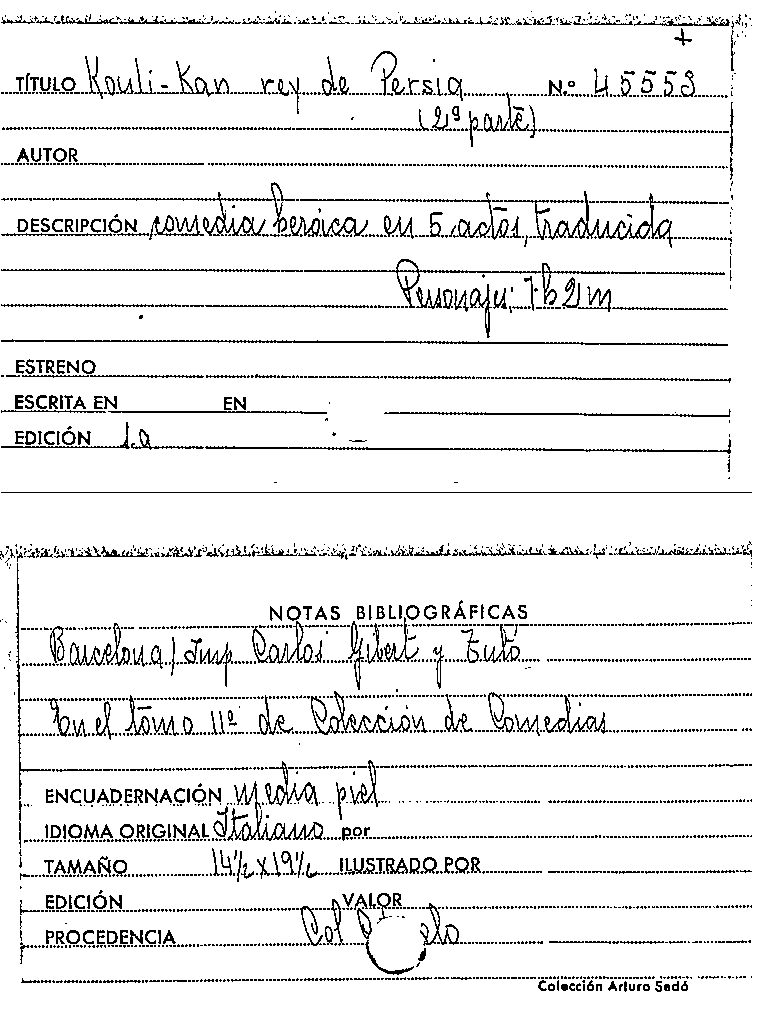 +
TÍTULO Kouli-Kan rey de Persia N.º 45553
(2ª parte)
AUTOR
DESCRIPCIÓN comedia heróica en 5 actos, traducida
Personajes: 7 h 2 m
ESTRENO
ESCRITA EN EN
EDICIÓN 1.a
NOTAS BIBLIOGRÁFICAS
Barcelona / Imp Carlos Gibert y Tutó
En el tomo 11º de Colección de Comedias
ENCUADERNACIÓN media piel
IDIOMA ORIGINAL Italiano por
TAMAÑO 14½ x 19½ ILUSTRADO POR
EDICIÓN VALOR
PROCEDENCIA Col
Colección Arturo Sedó